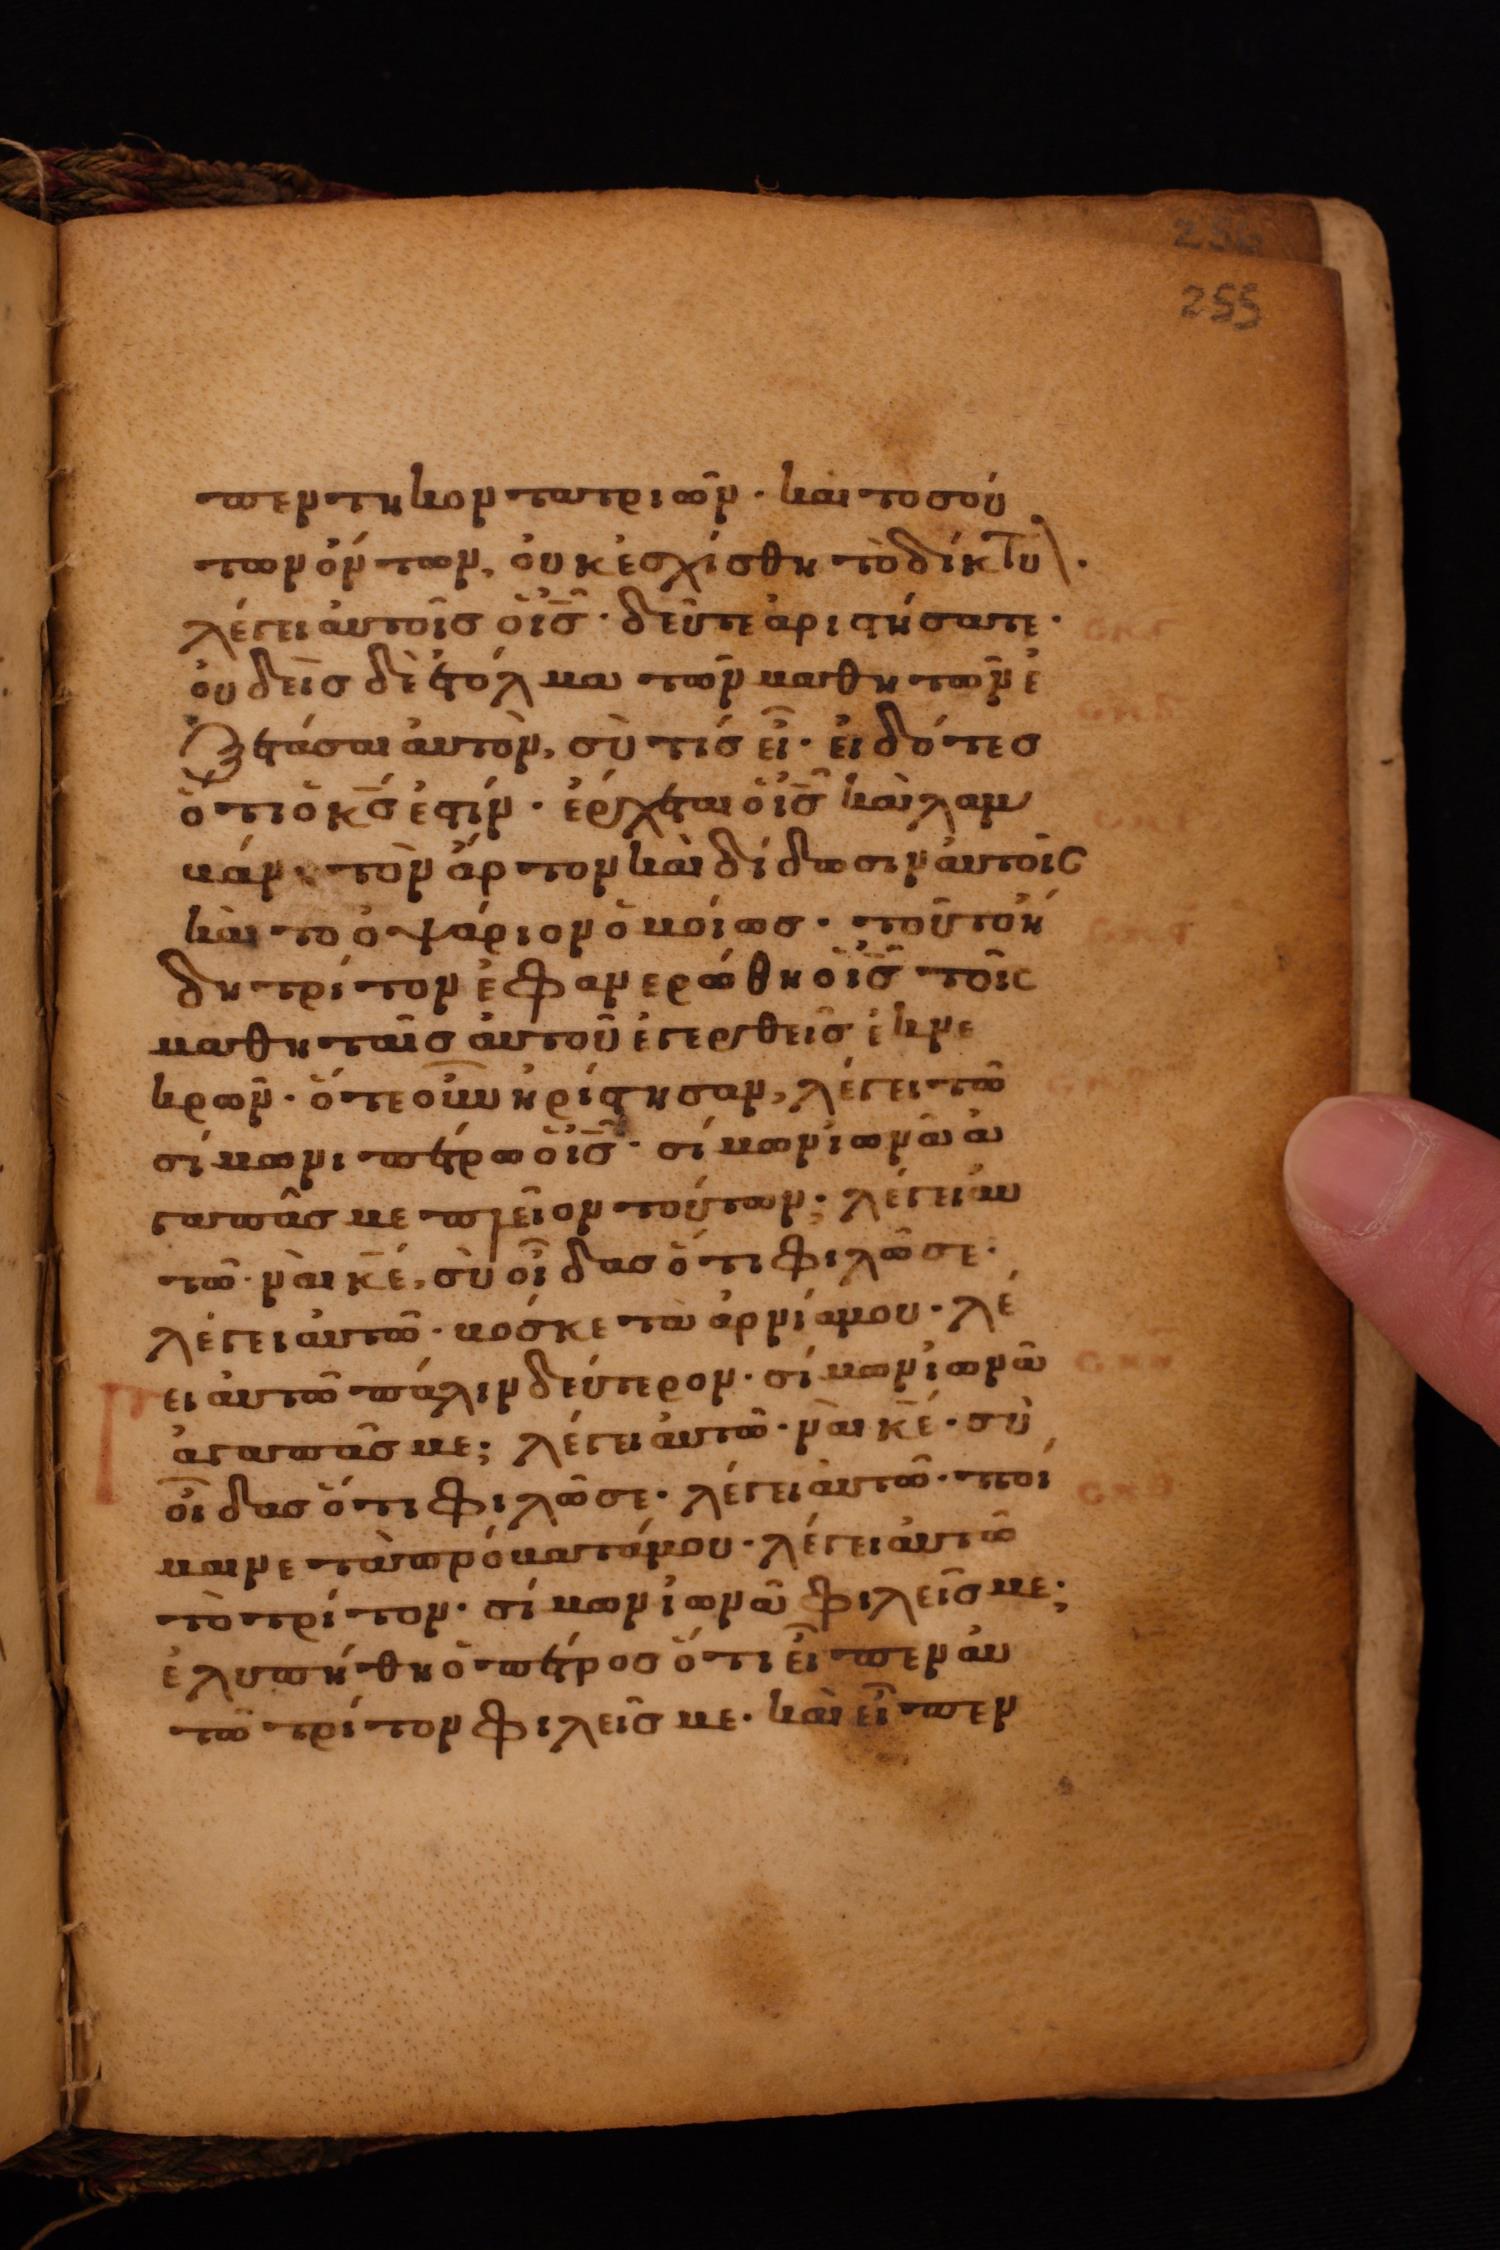 256
255
πεντηκοντατριῶν· καὶ τοσού
των ὄντων, οὐκ ἐσχίσθη τὸ δίκτυ\.
λέγει αὐτοῖς ὁ ἰς̅· δεῦτε ἀριστήσατε·
οὐδεὶς δὲ ἐτόλμα τῶν μαθητῶν ἐ
ξετάσαι αὐτὸν, σὺ τίς εἶ· εἰδότες
ὅτι ὁ κ̅ς̅ ἐστίν· ἔρχεται ὁ ἰς̅ καὶ λαμ
βάν τὸν ἄρτον καὶ δίδωσιν αὐτοῖς
καὶ τὸ ὀψάριον ὁμοίως· τοῦτο ἤ
δη τρίτον ἐφανερώθη ὁ ἰς̅ τοῖς
μαθηταῖς αὐτοῦ ἐγερθεὶς ἐκ νε
κρῶν· ὅτε οὖν ἠρίστησαν, λέγει τῶ
σίμωνι πέτρω ὁ ἰς̅· σίμων ἰωνᾶ ἀ
γαπᾶς με πλεῖον τούτων; λέγει αὐ
τῶ· ναὶ κ̅ε̅, σὺ οἶδας ὅτι φιλῶ σε·
λέγει αὐτῶ· βόσκε τὰ ἀρνία μου· λέ
ει αὐτῶ πάλιν δεύτερον· σίμων ἰωνᾶ
ἀγαπᾶς με; λέγει αὐτῶ· ναὶ κ̅ε̅· σὺ
οἶδας ὅτι φιλῶ σε· λέγει αὐτῶ· ποί
μαινε τὰ πρόβατά μου· λέγει αὐτῶ
τὸ τρίτον· σίμων ἰωνᾶ φιλεῖς με;
ἐλυπήθη ὁ πέτρος ὅτι εἶπεν αὐ
τῶ τρίτον φιλεῖς με· καὶ εἶπεν